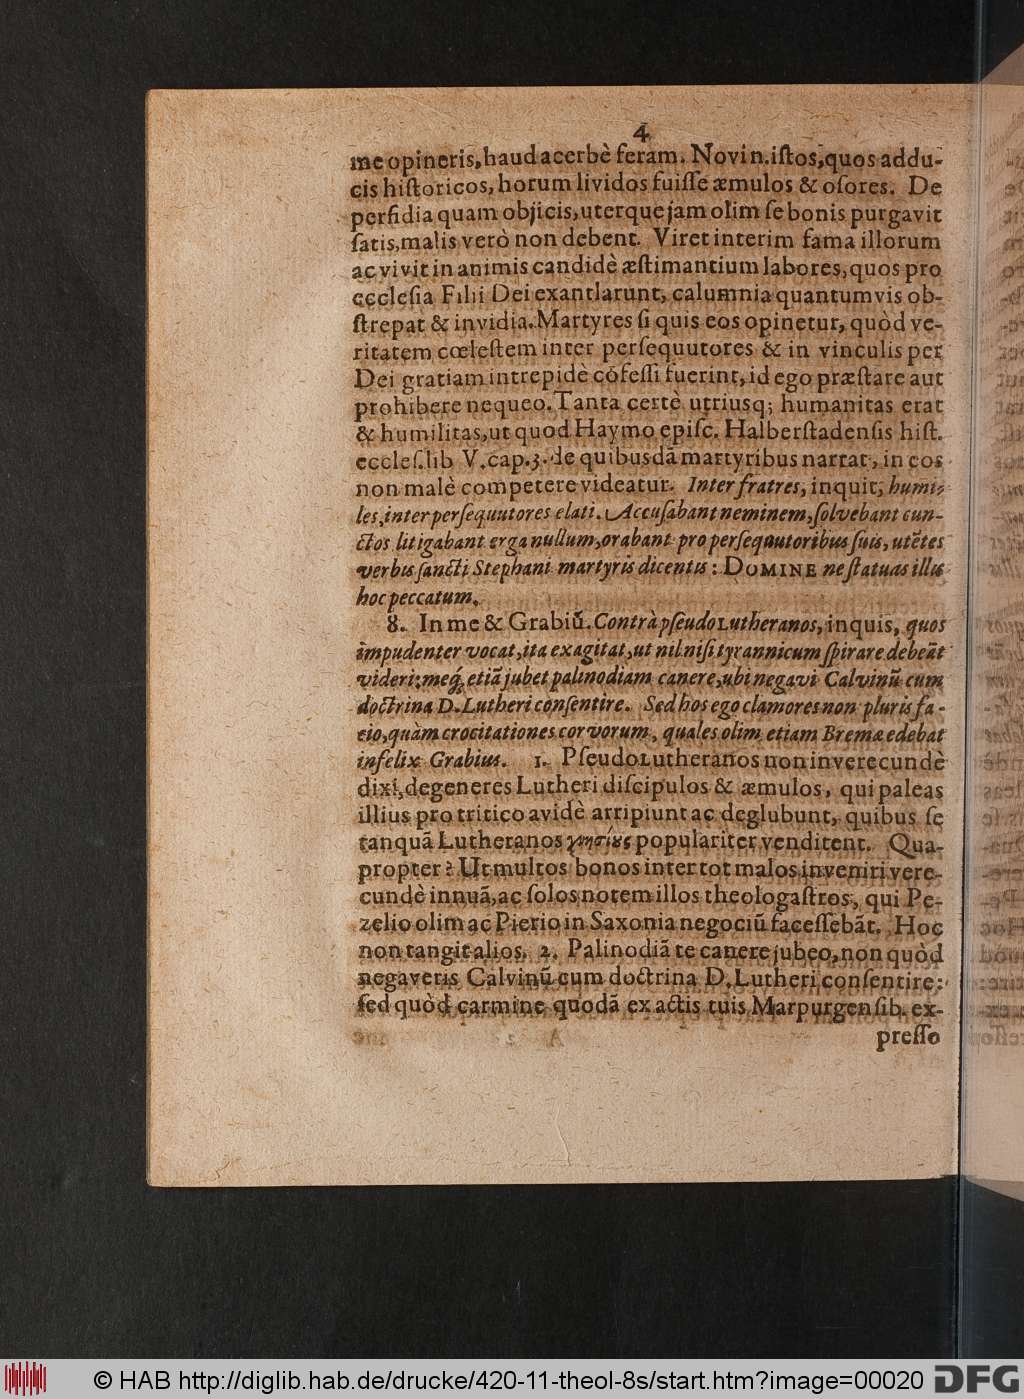 4
me opineris, haud acerbè feram. Novi n. iſtos, quos addu-
cis hiſtoricos, horum lividos fuiſſe æmulos & oſores. De
perfidia quam objicis, uterque jam olim ſe bonis purgavit
ſatis, malis verò non debent. Viret interim fama illorum
ac vivit in animis candidè æſtimantium labores, quos pro
eccleſia Filii Dei exantlarunt, calumnia quantumvis ob-
ſtrepat & invidia. Martyres ſi quis eos opinetur, quòd ve-
ritatem cœleſtem inter perſequutores & in vinculis per
Dei gratiam intrepidè cõfeſſi fuerint, id ego præſtare aut
prohibere nequeo. Tanta certè utriusq; humanitas erat
& humilitas, ut quod Haymo epiſc. Halberſtadenſis hiſt.
eccleſ. lib V. cap. 3. de quibusdã martyribus narrat, in eos
non malè competere videatur. Inter fratres, inquit, humi-
les, inter perſequutores elati. Accuſabant neminem, ſolvebant cun-
ctos litigabant erga nullum, orabant pro perſequutoribus ſuis, utẽtes
verbis ſancti Stephani martyris dicentis: DOMINE ne ſtatuas illis
hoc peccatum.
8. In me & Grabiũ. Contrà pſeudoLutheranos, inquis, quos
impudenter vocat, ita exagitat, ut nil niſi tyrannicum ſpirare debeãt
videri: meq́; etiã jubet palinodiam canere, ubi negavi Calvinũ cum
doctrina D. Lutheri conſentire. Sed hos ego clamores non pluris fa-
cio, quàm crocitationes corvorum, quales olim etiam Bremæ edebat
infelix Grabius. 1. PſeudoLutheranos non inverecundè
dixi, degeneres Lutheri diſcipulos & æmulos, qui paleas
illius pro tritico avidè arripiunt ac deglubunt, quibus ſe
tanquã Lutheranos γνησίους populariter venditent. Qua-
propter? Ut multos bonos inter tot malos inveniri vere-
cundè innuã, ac ſolos notem illos theologaſtros, qui Pe-
zelio olim ac Pierio in Saxonia negociũ faceſſebãt. Hoc
non tangit alios. 2. Palinodiã te canere jubeo, non quòd
negaveris Calvinũ cum doctrina D. Lutheri conſentire:
ſed quòd carmine quodã ex actis tuis Marpurgenſib. ex-
preſſo
© HAB http://diglib.hab.de/drucke/420-11-theol-8s/start.htm?image=00020
DFG